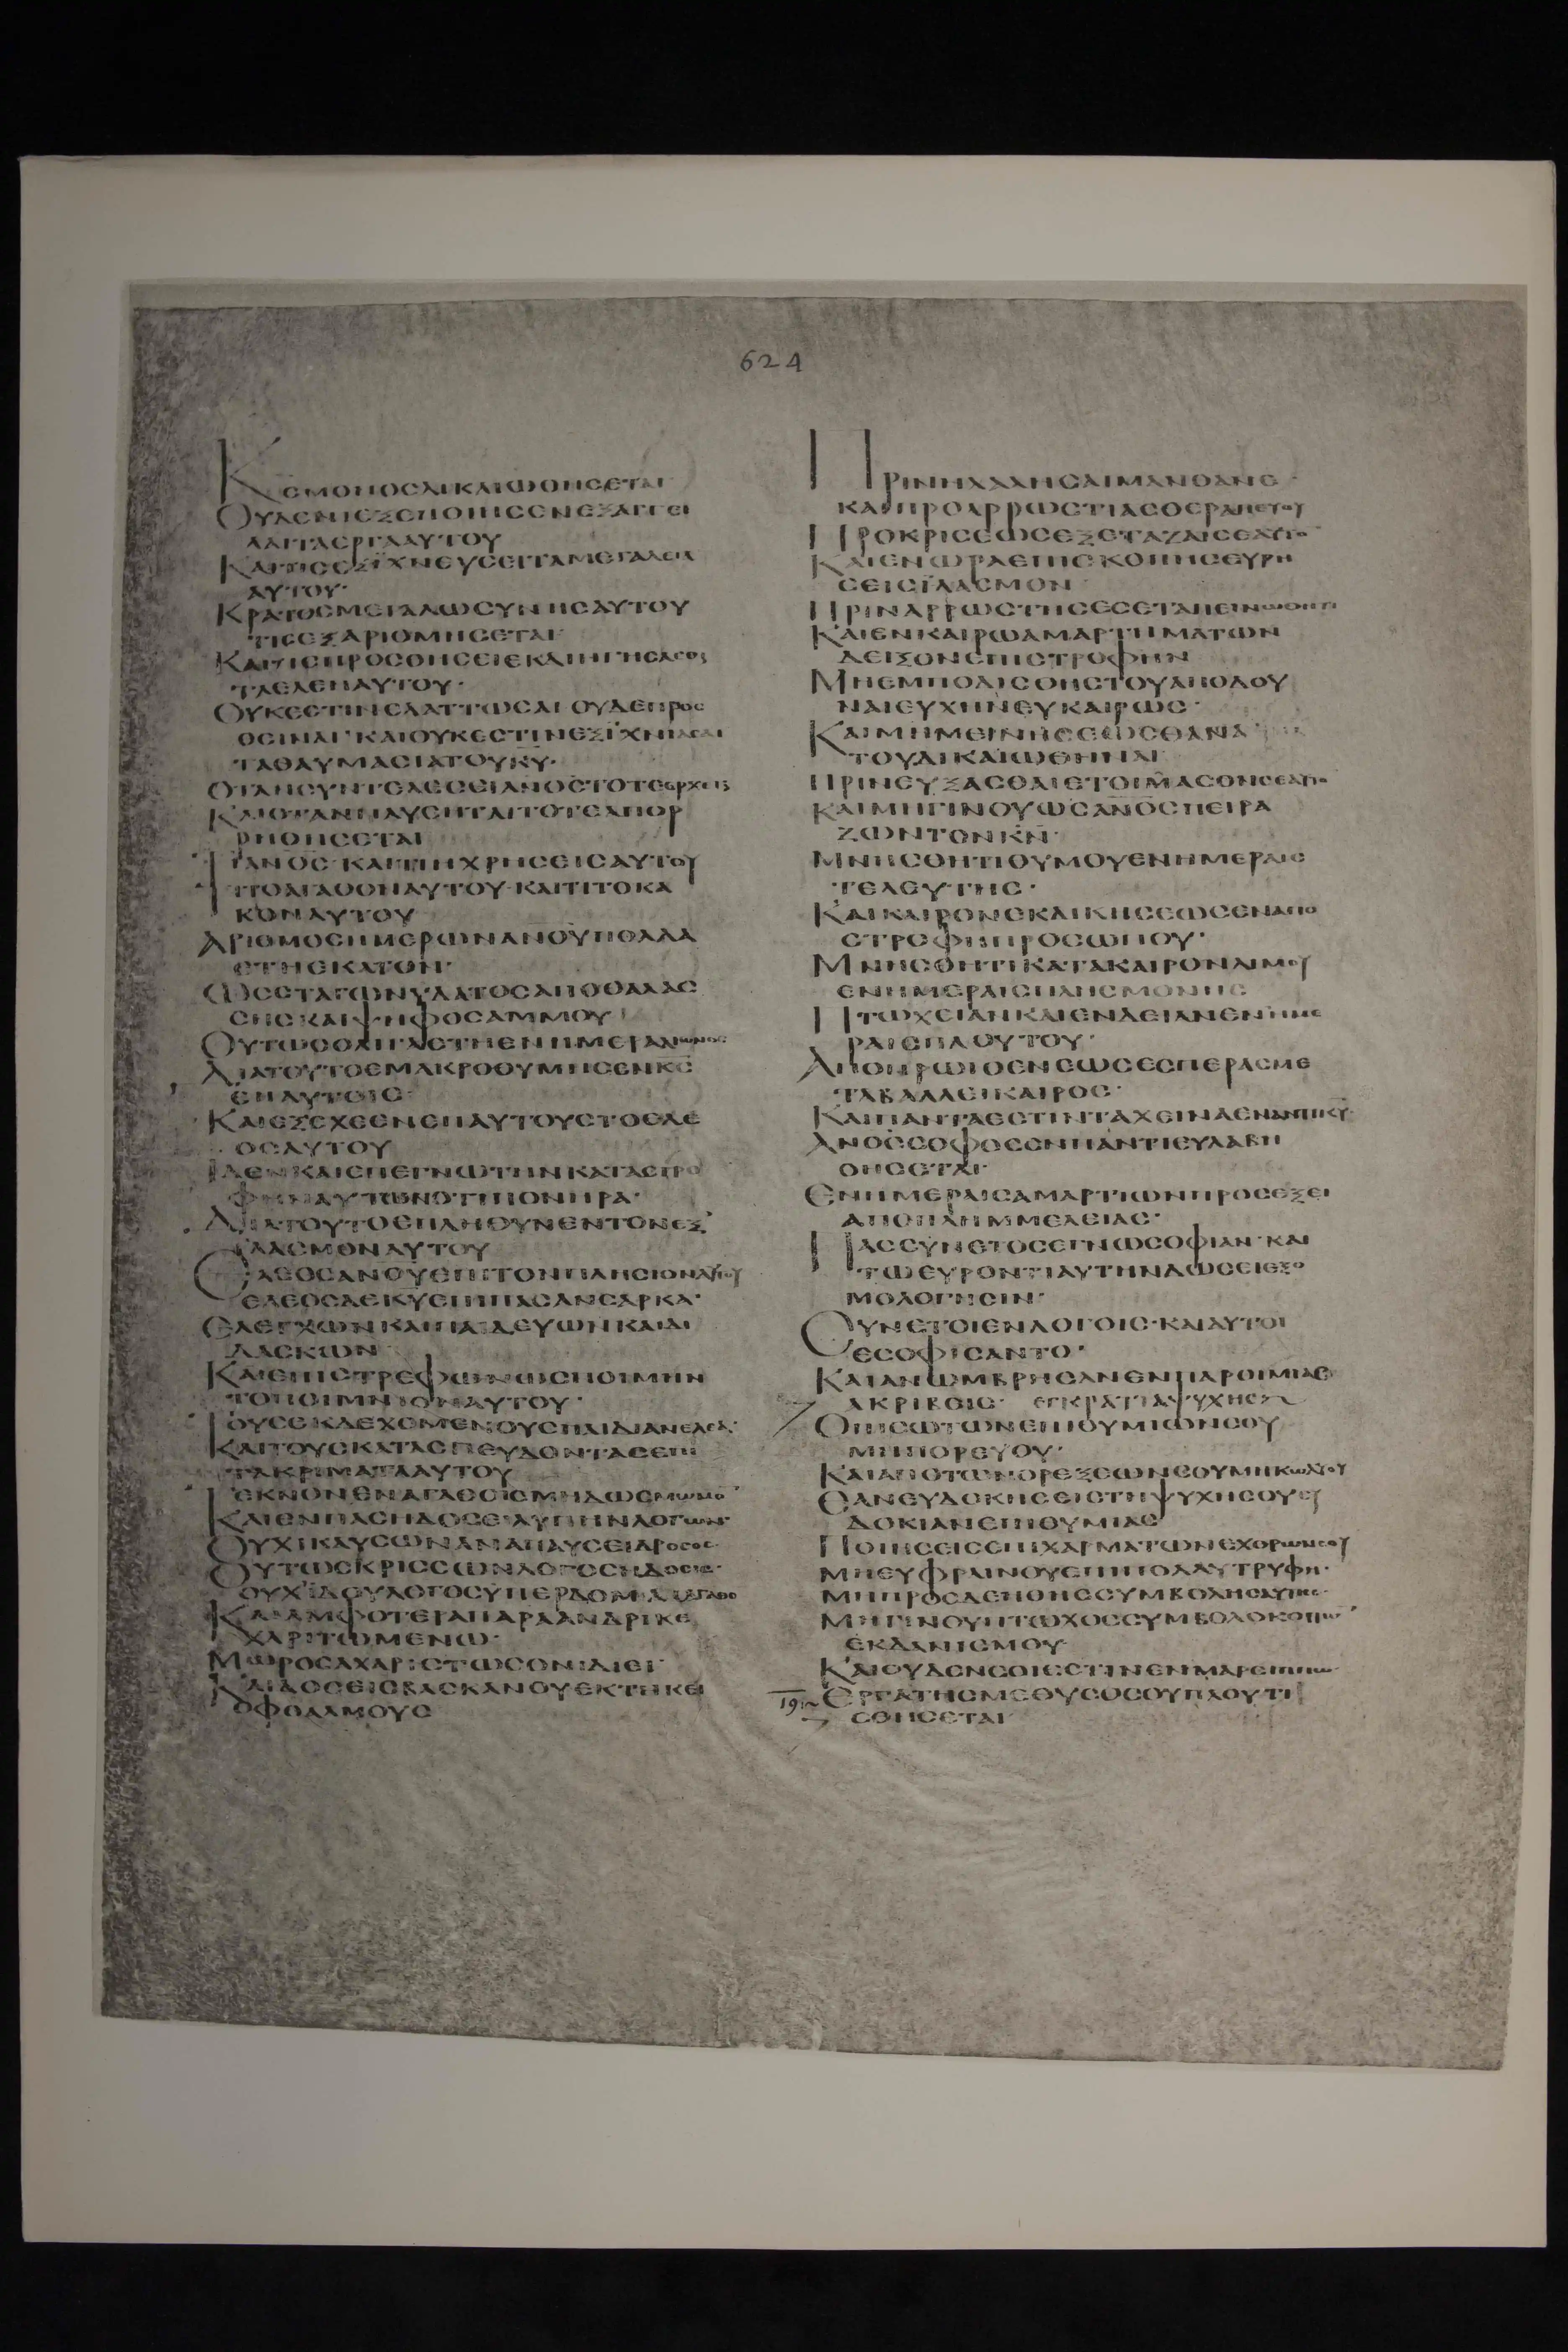 624
ΚϹΜΟΝΟϹΔΙΚΑΙΩΘΗϹΕΤΑΙ
ΟΥΔΕΝΙΕΞΕΠΟΙΗϹΕΝΕΞΑΓΓΕΙ
ΛΑΙΤΑΕΡΓΑΑΥΤΟΥ
ΚΑΙΤΙϹΕΞΙΧΝΕΥϹΕΙΤΑΜΕΓΑΛΕΙΑ
ΑΥΤΟΥ·
ΚΡΑΤΟϹΜΕΓΑΛΩϹΥΝΗϹΑΥΤΟΥ
ΤΙϹΕΞΑΡΙΘΜΗϹΕΤΑΙ·
ΚΑΙΤΙϹΠΡΟϹΘΗϹΕΙΕΚΔΙΗΓΗϹΑϹΘΑΙ
ΤΑΕΛΕΗΑΥΤΟΥ·
ΟΥΚΕϹΤΙΝΕΛΑΤΤΩϹΑΙ ΟΥΔΕΠΡΟϹ
ΘΕΙΝΑΙ·ΚΑΙΟΥΚΕϹΤΙΝΕΞΙΧΝΙΑϹΑΙ
ΤΑΘΑΥΜΑϹΙΑΤΟΥΚΥ·
ΟΤΑΝϹΥΝΤΕΛΕϹΕΙΑΝΟϹΤΟΤΕΑΡΧΕΤΑΙ
ΚΑΙΟΤΑΝΠΑΥϹΗΤΑΙΤΟΤΕΑΠΟΡ
ΡΗΘΗϹΕΤΑΙ
ΤΙΑΝΟϹ·ΚΑΙΤΙΗΧΡΗϹΕΙϹΑΥΤΟΥ
ΤΙΤΟΑΓΑΘΟΝΑΥΤΟΥ·ΚΑΙΤΙΤΟΚΑ
ΚΟΝΑΥΤΟΥ
ΑΡΙΘΜΟϹΗΜΕΡΩΝΑΝΟΥΠΟΛΛΑ
ΕΤΗΕΚΑΤΟΝ·
ΩϹϹΤΑΓΩΝΥΔΑΤΟϹΑΠΟΘΑΛΑϹ
ϹΗϹΚΑΙΨΗΦΟϹΑΜΜΟΥ
ΟΥΤΩϹΟΛΙΓΑΕΤΗΕΝΗΜΕΡΑΑΙΩΝΟϹ
ΔΙΑΤΟΥΤΟΕΜΑΚΡΟΘΥΜΗϹΕΝΚϹ
ΕΠΑΥΤΟΙϹ·
ΚΑΙΕΞΕΧΕΕΝΕΠΑΥΤΟΥϹΤΟΕΛΕ
ΟϹΑΥΤΟΥ
ΙΔΕΝΚΑΙΕΠΕΓΝΩΤΗΝΚΑΤΑϹΤΡΟ
ΦΗΝΑΥΤΩΝΟΤΙΠΟΝΗΡΑ·
ΔΙΑΤΟΥΤΟΕΠΛΗΘΥΝΕΝΤΟΝΕΞ
ΙΛΑϹΜΟΝΑΥΤΟΥ
ΕΛΕΟϹΑΝΟΥΕΠΙΤΟΝΠΛΗϹΙΟΝΑΥΤΟΥ
ΕΛΕΟϹΔΕΚΥΕΠΙΠΑϹΑΝϹΑΡΚΑ·
ΕΛΕΓΧΩΝΚΑΙΠΑΙΔΕΥΩΝΚΑΙΔΙ
ΔΑϹΚΩΝ
ΚΑΙΕΠΙϹΤΡΕΦΩΝΩϹΠΟΙΜΗΝ
ΤΟΠΟΙΜΝΙΟΝΑΥΤΟΥ·
ΤΟΥϹΕΚΔΕΧΟΜΕΝΟΥϹΠΑΙΔΙΑΝΕΛΕΑ·
ΚΑΙΤΟΥϹΚΑΤΑϹΠΕΥΔΟΝΤΑϹΕΠΙ
ΤΑΚΡΙΜΑΤΑΑΥΤΟΥ
ΤΕΚΝΟΝΕΝΑΓΑΘΟΙϹΜΗΔΩϹΜΩΜΟ
ΚΑΙΕΝΠΑϹΗΔΟϹΕΙΛΥΠΗΝΛΟΓΩΝ·
ΟΥΧΙΚΑΥϹΩΝΑΝΑΠΑΥϹΕΙΔΡΟϹΟϹ·
ΟΥΤΩϹΚΡΙϹϹΩΝΛΟΓΟϹΗΔΟϹΙϹ·
ΟΥΧΙΔΟΥΛΟΓΟϹΥΠΕΡΔΟΜΑΑΓΑΘΟ
ΚΑΙΑΜΦΟΤΕΡΑΠΑΡΑΑΝΔΡΙΚΕ
ΧΑΡΙΤΩΜΕΝΩ·
ΜΩΡΟϹΑΧΑΡΙϹΤΩϹΟΝΙΔΙΕΙ·
ΚΑΙΔΟϹΕΙϹΒΑϹΚΑΝΟΥΕΚΤΗΚΕΙ
ΟΦΘΑΛΜΟΥϹ
ΠΡΙΝΗΛΑΛΗϹΑΙΜΑΝΘΑΝΕ·
ΚΑΙΠΡΟΑΡΡΩϹΤΙΑϹΘΕΡΑΠΕΥΟΥ
ΠΡΟΚΡΙϹΕΩϹΕΞΕΤΑΖΑΙϹΕΑΥΤΟ
ΚΑΙΕΝΩΡΑΕΠΙϹΚΟΠΗϹΕΥΡΗ
ϹΕΙϹΙΛΑϹΜΟΝ
ΠΡΙΝΑΡΡΩϹΤΗϹΕϹΕΤΑΠΕΙΝΩΘΗΤΙ
ΚΑΙΕΝΚΑΙΡΩΑΜΑΡΤΗΜΑΤΩΝ
ΔΕΙΞΟΝΕΠΙϹΤΡΟΦΗΝ
ΜΗΕΜΠΟΔΙϹΘΗϹΤΟΥΑΠΟΔΟΥ
ΝΑΙΕΥΧΗΝΕΥΚΑΙΡΩϹ·
ΚΑΙΜΗΜΕΙΝΗϹΕΩϹΘΑΝΑ
ΤΟΥΔΙΚΑΙΩΘΗΝΑΙ
ΠΡΙΝΕΥΞΑϹΘΑΙΕΤΟΙΜΑϹΟΝϹΕΑΥΤΟ
ΚΑΙΜΗΓΙΝΟΥΩϹΑΝΟϹΠΕΙΡΑ
ΖΩΝΤΟΝΚΝ·
ΜΝΗϹΘΗΤΙΘΥΜΟΥΕΝΗΜΕΡΑΙϹ
ΤΕΛΕΥΤΗϹ·
ΚΑΙΚΑΙΡΟΝΕΚΔΙΚΗϹΕΩϹΕΝΑΠΟ
ϹΤΡΟΦΗΠΡΟϹΩΠΟΥ·
ΜΝΗϹΘΗΤΙΚΑΤΑΚΑΙΡΟΝΛΙΜΟΥ
ΕΝΗΜΕΡΑΙϹΠΛΗϹΜΟΝΗϹ
ΠΤΩΧΕΙΑΝΚΑΙΕΝΔΕΙΑΝΕΝΗΜΕ
ΡΑΙϹΠΛΟΥΤΟΥ·
ΑΠΟΠΡΩΙΘΕΝΕΩϹΕϹΠΕΡΑϹΜΕ
ΤΑΒΑΛΛΕΙΚΑΙΡΟϹ·
ΚΑΙΠΑΝΤΑΕϹΤΙΝΤΑΧΕΙΝΑΕΝΑΝΤΙΚΥ·
ΑΝΟϹϹΟΦΟϹΕΝΠΑΝΤΙΕΥΛΑΒΗ
ΘΗϹΕΤΑΙ·
ΕΝΗΜΕΡΑΙϹΑΜΑΡΤΙΩΝΠΡΟϹΕΞΕΙ
ΑΠΟΠΛΗΜΜΕΛΕΙΑϹ·
ΠΑϹϹΥΝΕΤΟϹΕΓΝΩϹΟΦΙΑΝ·ΚΑΙ
ΤΩΕΥΡΟΝΤΙΑΥΤΗΝΔΩϹΕΙΕΞΟ
ΜΟΛΟΓΗϹΙΝ·
ϹΥΝΕΤΟΙΕΝΛΟΓΟΙϹ·ΚΑΙΑΥΤΟΙ
ΕϹΟΦΙϹΑΝΤΟ·
ΚΑΙΑΝΩΜΒΡΗϹΑΝΕΝΠΑΡΟΙΜΙΑΙϹ
ΑΚΡΙΒΕΙϹ· ΕΓΚΡΑΤΙΑΨΥΧΗϹ
ΟΠΙϹΩΤΩΝΕΠΙΘΥΜΙΩΝϹΟΥ
ΜΗΠΟΡΕΥΟΥ·
ΚΑΙΑΠΟΤΩΝΟΡΕΞΕΩΝϹΟΥΜΗΚΩΛΥΟΥ
ΕΑΝΕΥΔΟΚΗϹΕΙϹΤΗΨΥΧΗϹΟΥΕΥ
ΔΟΚΙΑΝΕΠΙΘΥΜΙΑϹ
ΠΟΙΗϹΕΙϹΕΠΙΧΑΡΜΑΤΩΝΕΧΘΡΩΝϹΟΥ
ΜΗΕΥΦΡΑΙΝΟΥΕΠΙΠΟΛΛΥΤΡΥΦΗ·
ΜΗΠΡΟϹΔΕΗΘΗϹϹΥΜΒΟΛΗΑΥΤΗϹ·
ΜΗΓΙΝΟΥΠΤΩΧΟϹϹΥΜΒΟΛΟΚΟΠΩ
ΕΚΔΑΝΙϹΜΟΥ·
ΚΑΙΟΥΔΕΝϹΟΙΕϹΤΙΝΕΝΜΑΡϹΙΠΠΙΩ
19 ΕΡΓΑΤΗϹΜΕΘΥϹΟϹΟΥΠΛΟΥΤΙ
ϹΘΗϹΕΤΑΙ